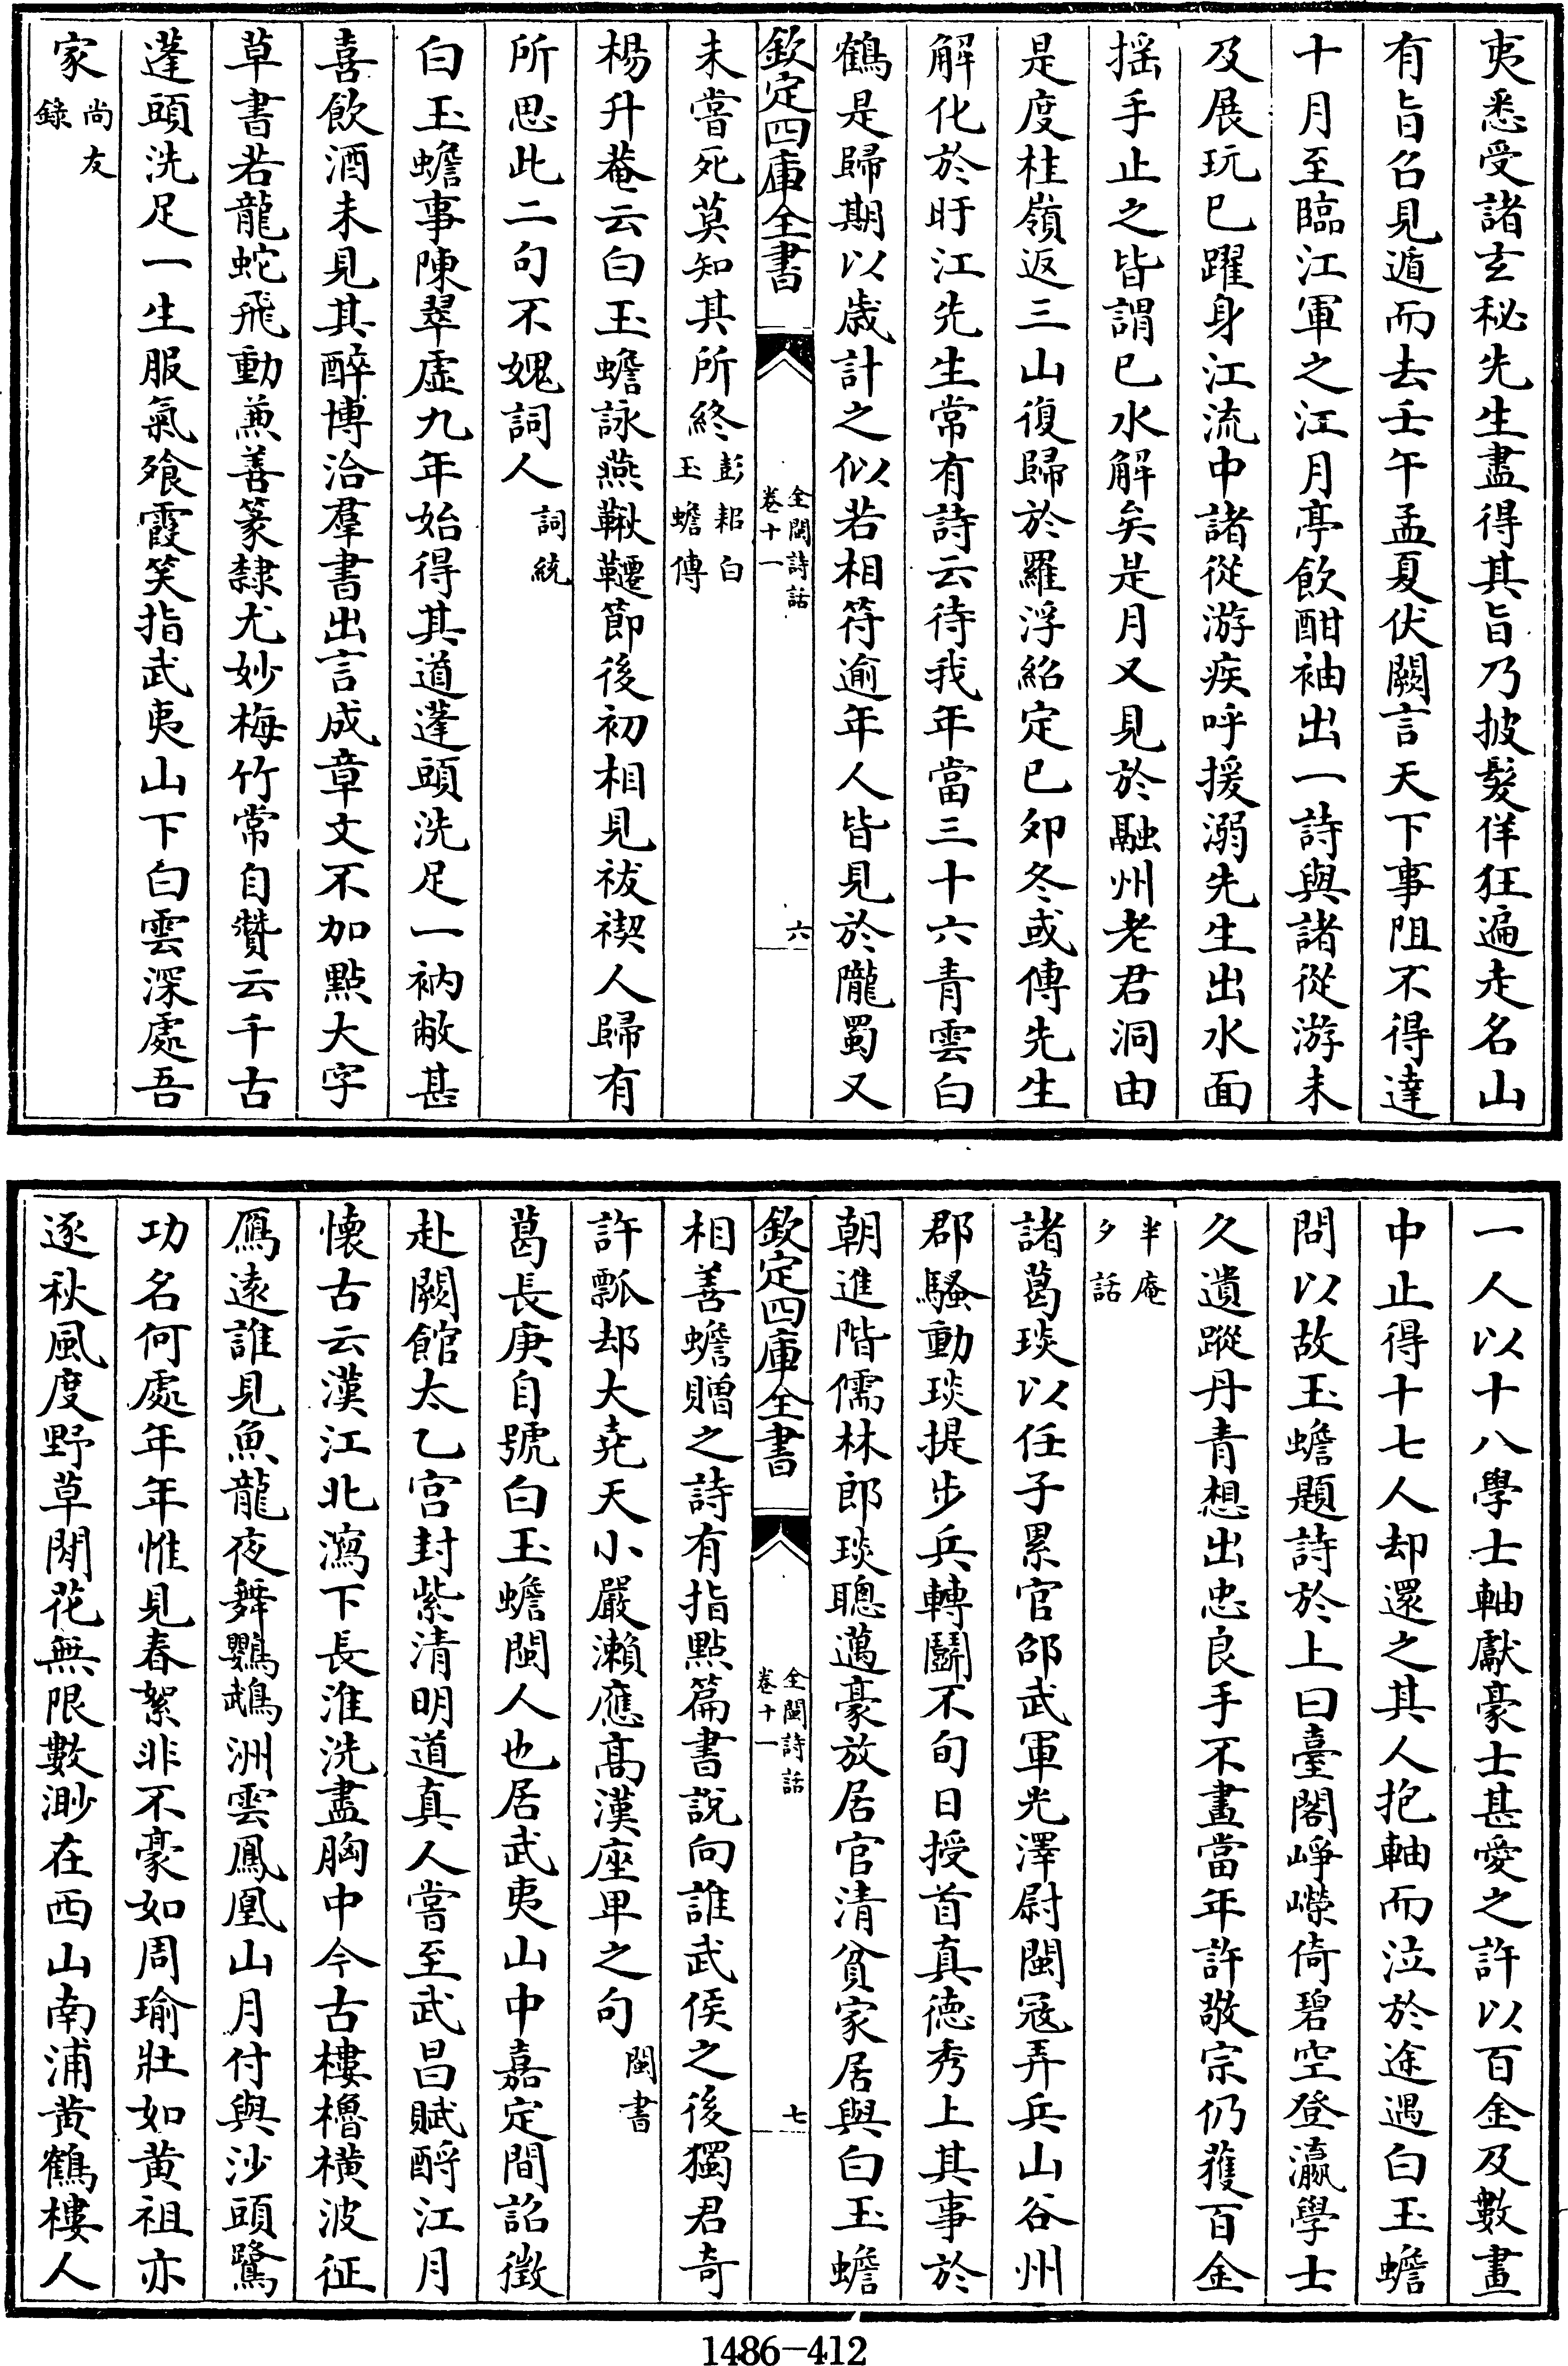 夷悉受諸玄秘先生盡得其旨乃披髮佯狂遍走名山
有旨召見遁而去壬午孟夏伏闕言天下事阻不得達
十月至臨江軍之江月亭飲酣袖出一詩與諸從游未
及展玩已躍身江流中諸從游疾呼援溺先生出水面
揺手止之皆謂已水解矣是月又見於融州老君洞由
是度桂嶺返三山復歸於羅浮紹定已卯冬或傳先生
解化於盱江先生常有詩云待我年當三十六青雲白
鶴是歸期以歳計之似若相符逾年人皆見於隴蜀又
欽定四庫全書
全閩詩話
卷十一
六
未嘗死莫知其所終彭耜白
玉蟾傳
楊升菴云白玉蟾詠燕鞦韆節後初相見祓禊人歸有
所思此二句不媿詞人詞統
白玉蟾事陳翠虛九年始得其道蓬頭洗足一衲敝甚
喜飲酒未見其醉博洽羣書出言成章文不加點大字
草書若龍蛇飛動兼善篆隸尤妙梅竹常自贊云千古
蓬頭洗足一生服氣飱霞笑指武夷山下白雲深處吾
家尚友
錄
一人以十八學士軸獻豪士甚愛之許以百金及數畫
中止得十七人却還之其人抱軸而泣於途遇白玉蟾
問以故玉蟾題詩於上曰臺閣崢嶸倚碧空登瀛學士
久遺蹤丹青想出忠良手不畫當年許敬宗仍獲百金
半庵
夕話
諸葛琰以任子累官邵武軍光澤尉閩冦弄兵山谷州
郡騷動琰提步兵轉鬭不旬日授首真德秀上其事於
朝進階儒林郎琰聰邁豪放居官清貧家居與白玉蟾
欽定四庫全書
全閩詩話
卷十一
七
相善蟾贈之詩有指點篇書說向誰武侯之後獨君奇
許瓢却大堯天小嚴瀨應髙漢座卑之句閩書
葛長庚自號白玉蟾閩人也居武夷山中嘉定間詔徵
赴闕館太乙宮封紫清明道真人嘗至武昌賦酹江月
懐古云漢江北瀉下長淮洗盡胸中今古樓櫓橫波征
鴈逺誰見魚龍夜舞鸚鵡洲雲鳳凰山月付與沙頭鷺
功名何處年年惟見春絮非不豪如周瑜壯如黄祖亦
逐秋風度野草閒花無限數渺在西山南浦黄鶴樓人
1486-412